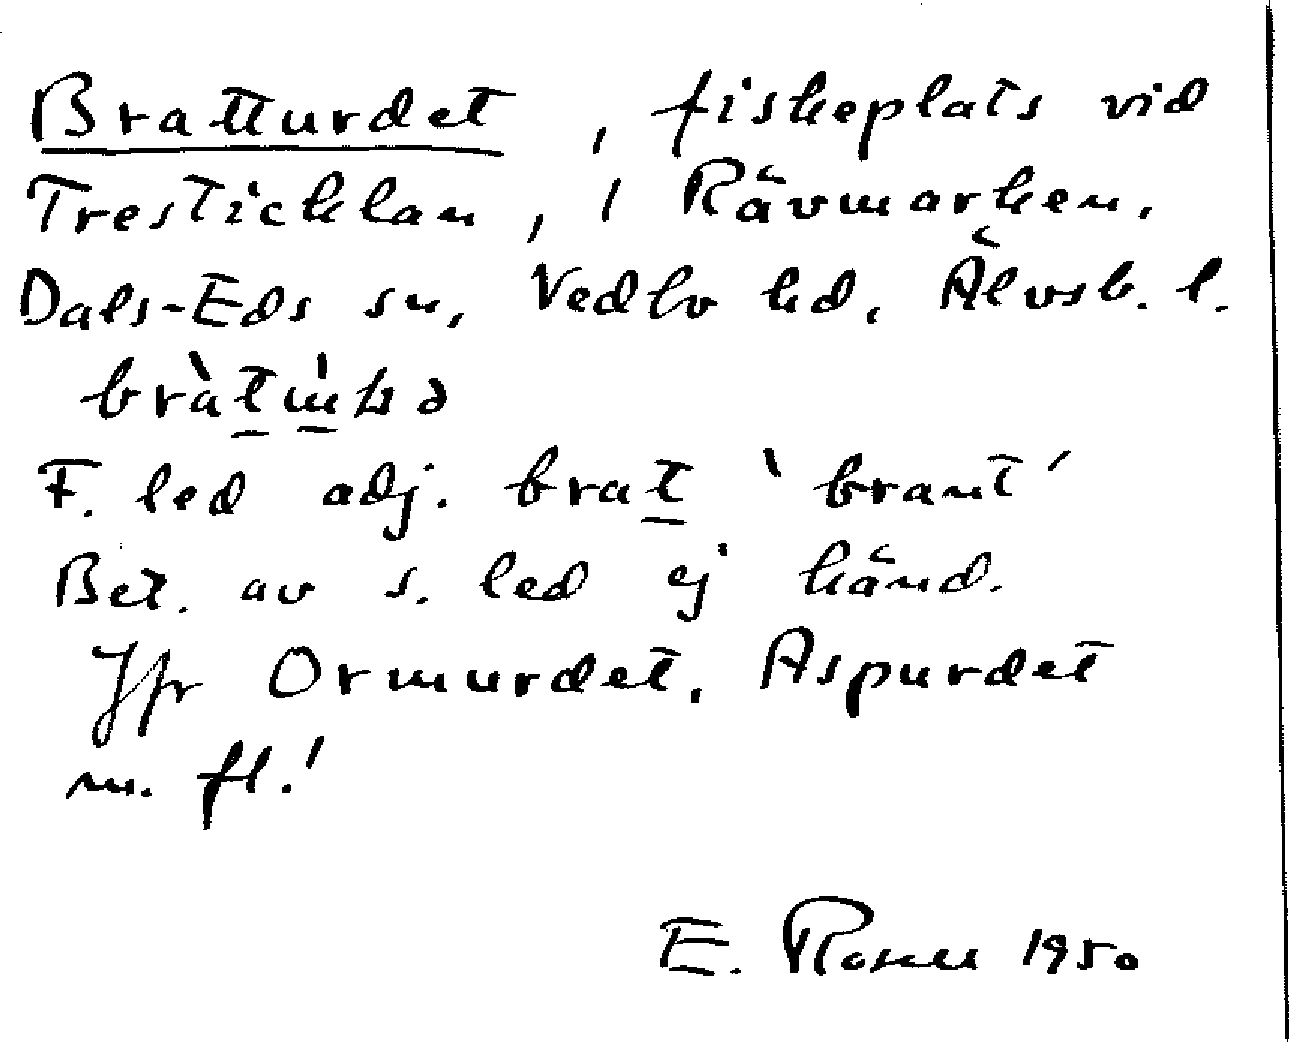 Bratturdet, fiskeplats vid
Tresticklan, i Rävmarken,
Dals-Eds sn, Vedbo hd, Älvsb. l.
F. led adj. brat 'brant'
Bet. av s. led ej känd.
Jfr Ormurdet, Aspurdet
m. fl.!
E. Rosen 1950